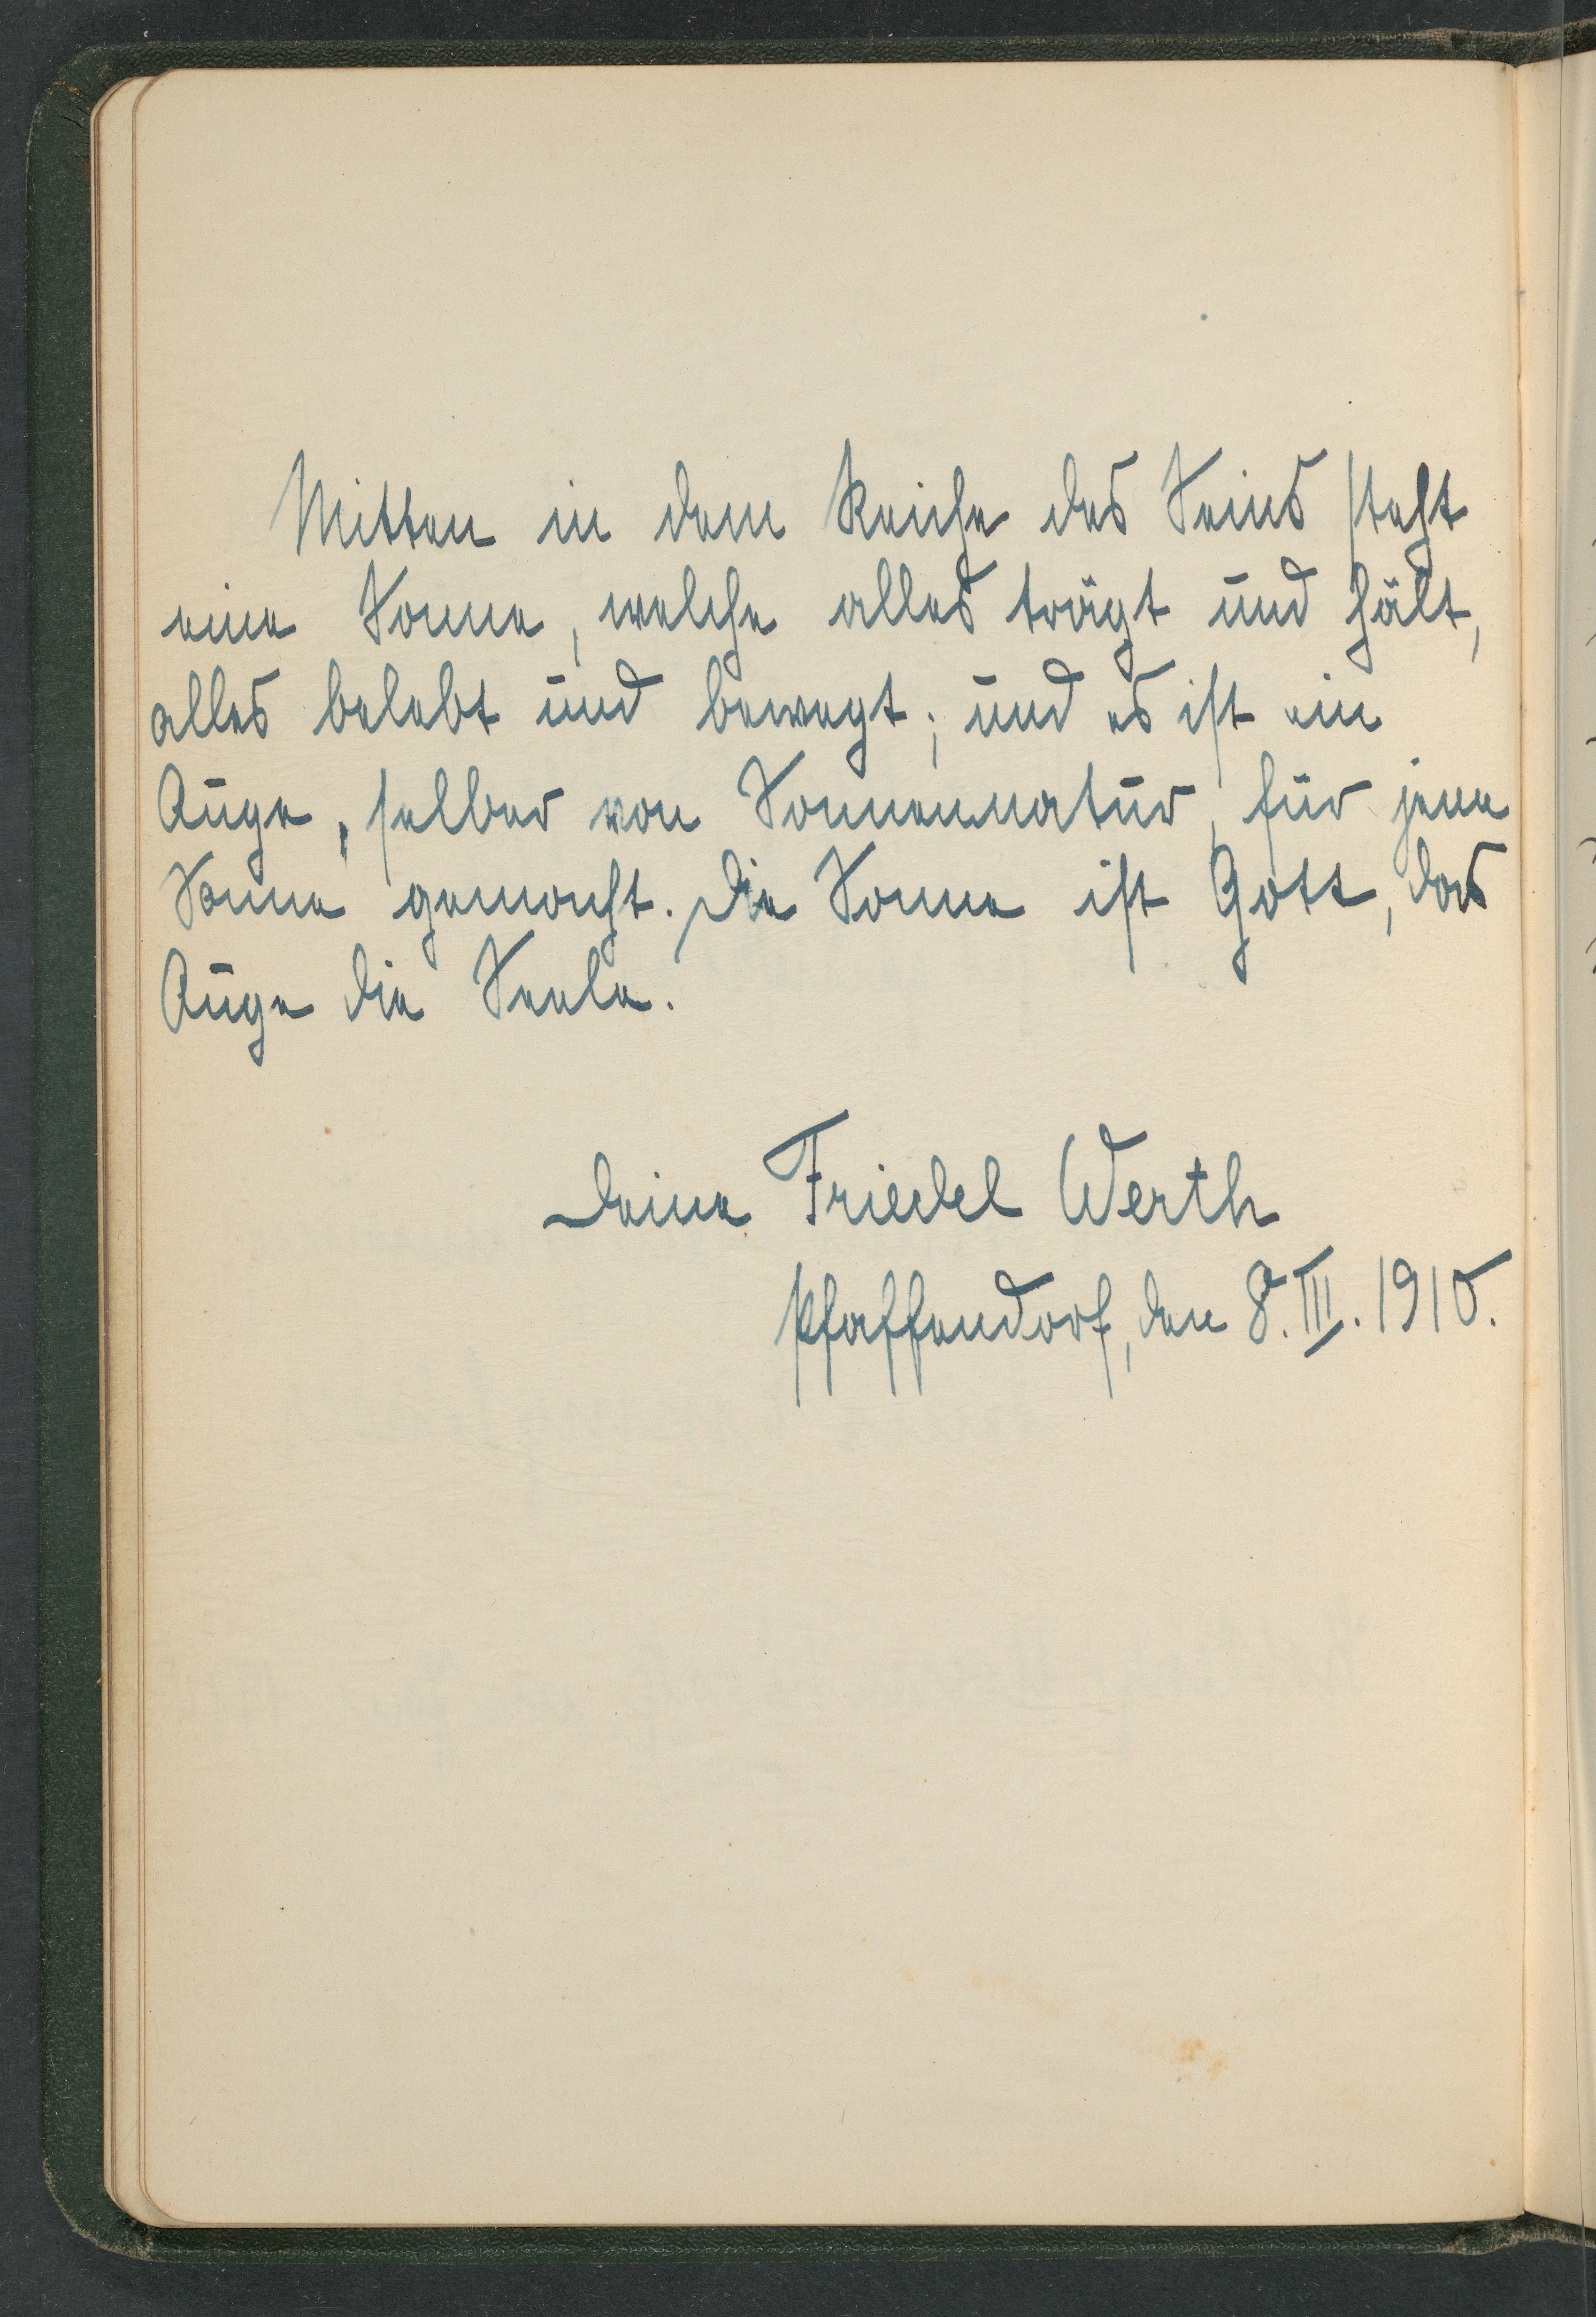 Mitten in dem Reiche des Seins steht
eine Sonne, welche alles trägt und hält,
alles belebt und bewegt; und es ist ein
Auge, selber von Sonnennatur, für jene
Sonne gemacht. Die Sonne ist Gott, das
Auge die Seele.
Deine Friedel Werth
Pfaffendorf, den 8. III. 1910.